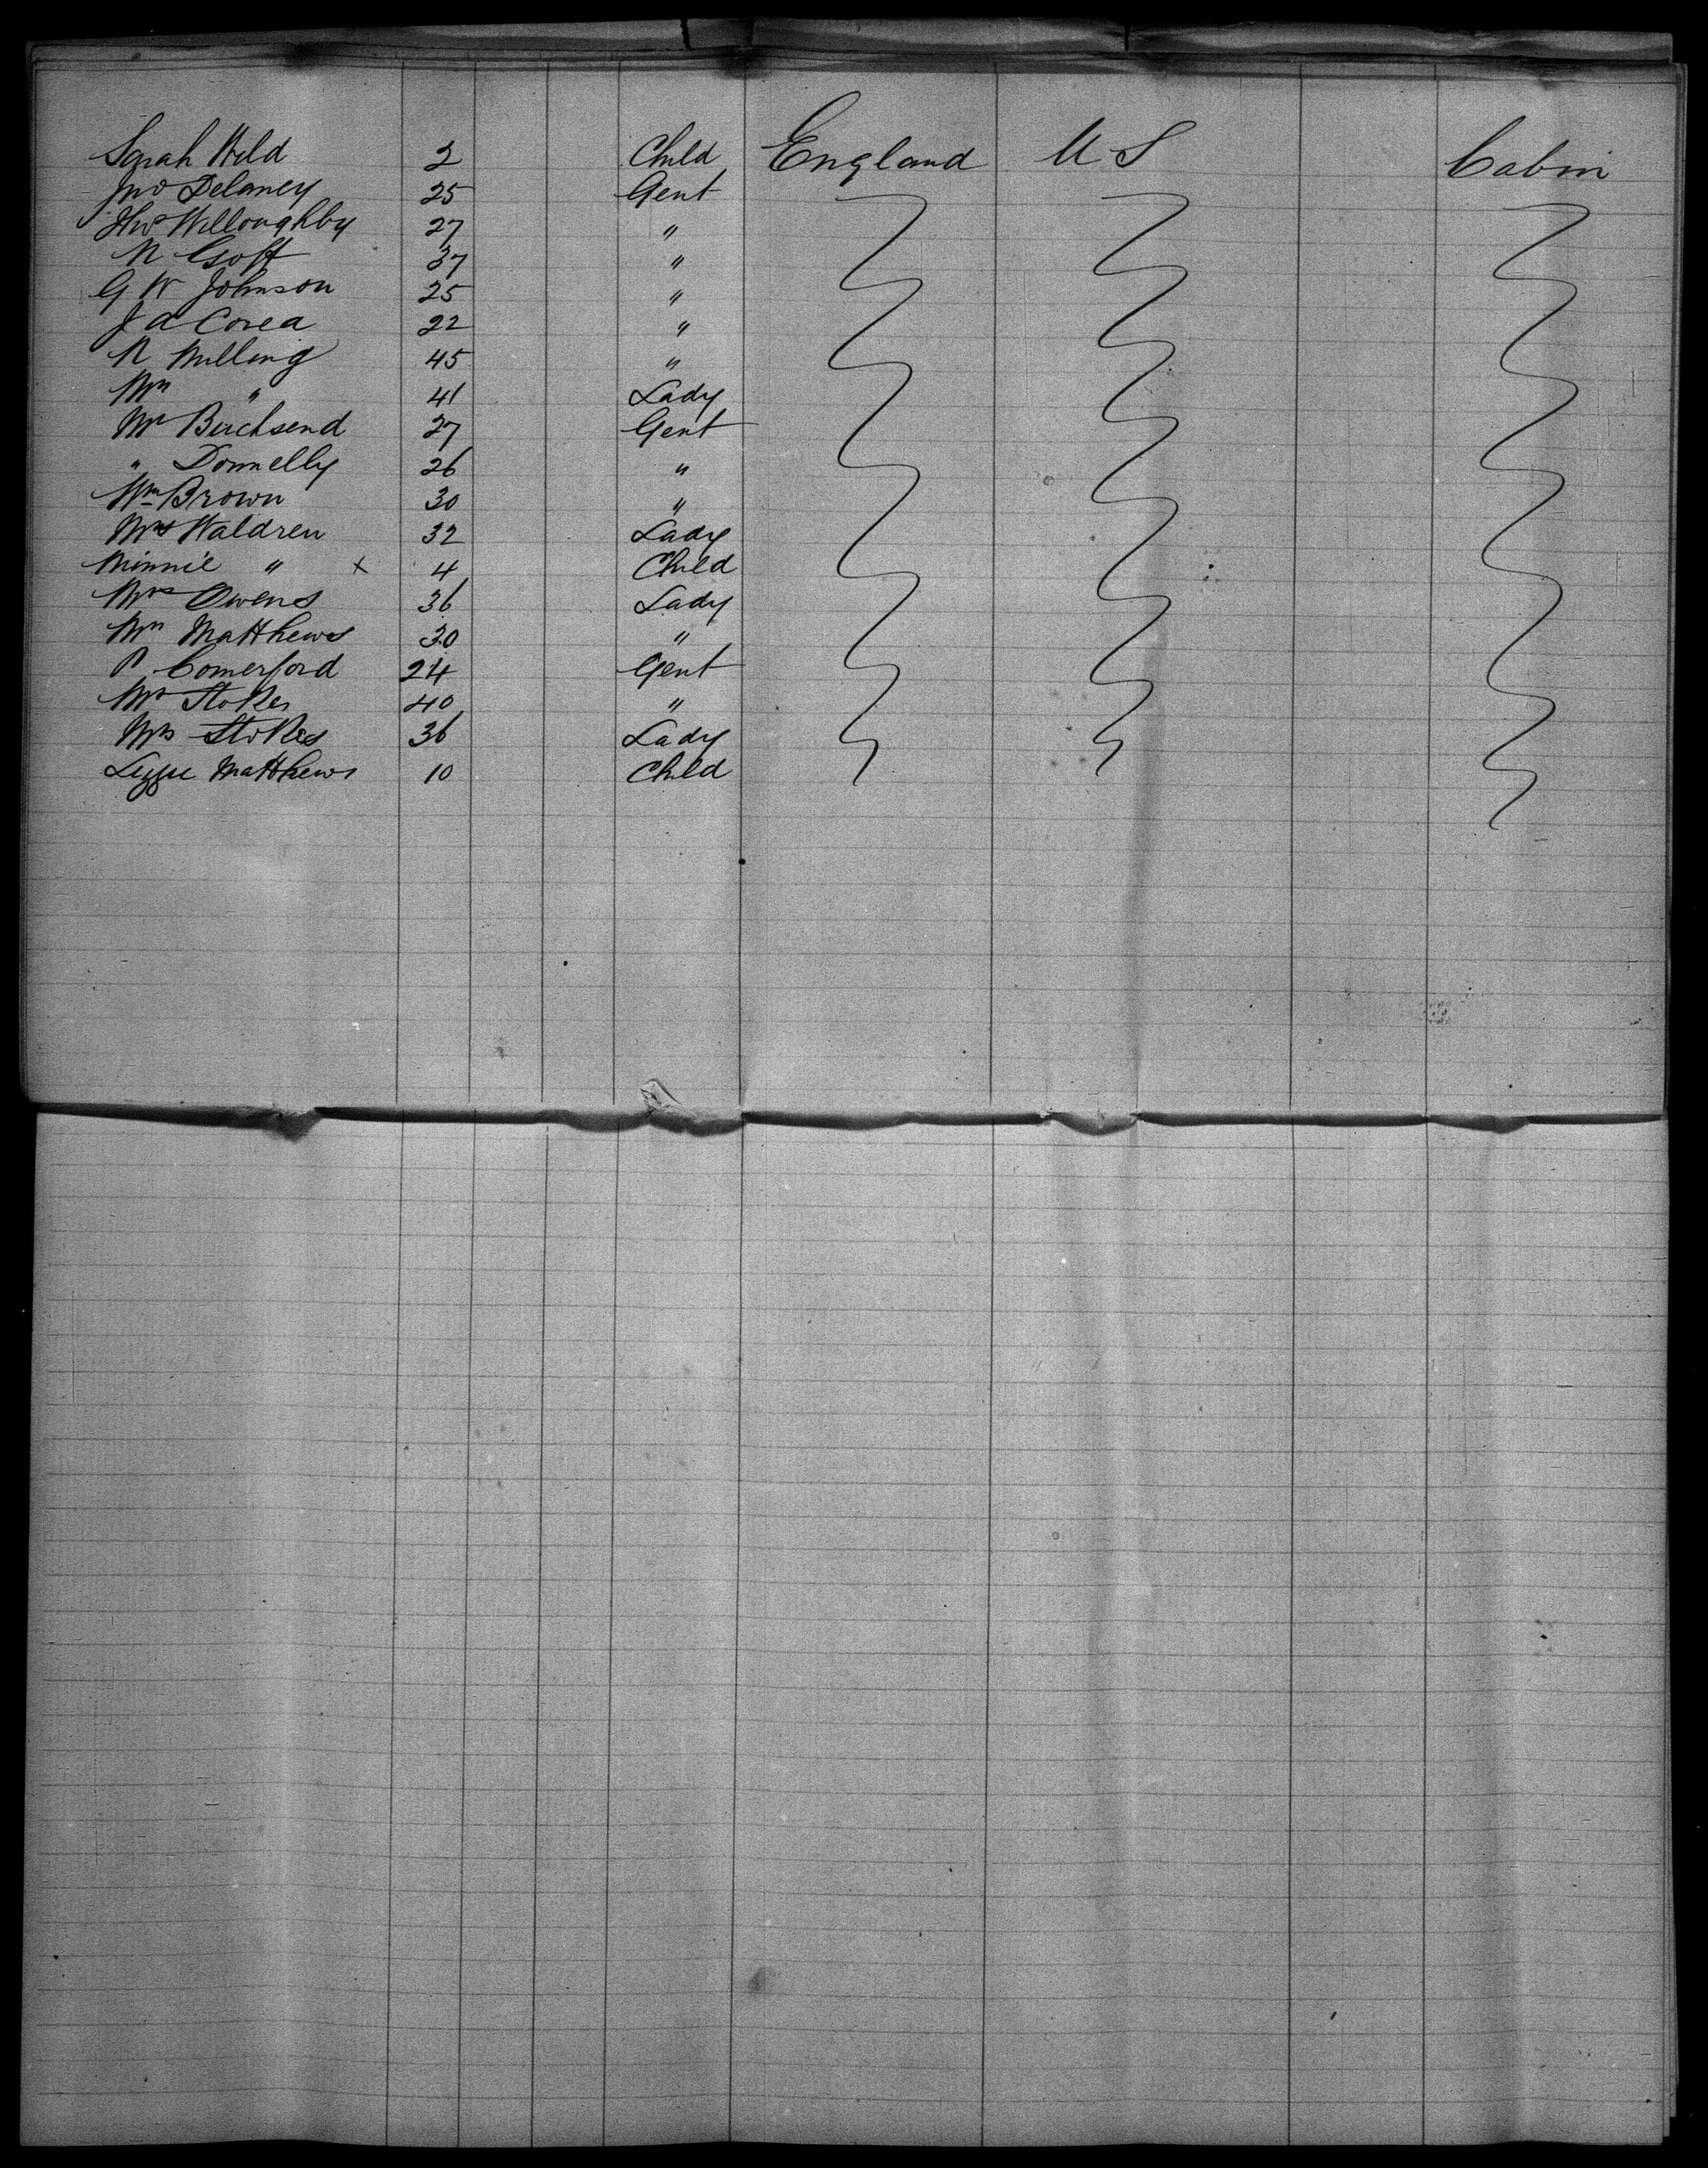 Sarah Wild 2 Child England U S Cabin
Jno Delaney 25 Gent
Thos Willoughby 27 "
N Goff 37 "
G W Johnson 25 "
J a Corea 22 "
R Milling 45 "
Mrs " 41 Lady
Mr Birchsend 27 Gent
" Donnelly 26 "
Wm Brown 30 "
Mrs Waldren 32 Lady
Minnie " x 4 Child
Mrs Owens 36 Lady
Mrs Matthews 30 "
P Comerford 24 Gent
Mr Stokes 40 "
Mrs Stokes 36 Lady
Lizzie Matthews 10 Child